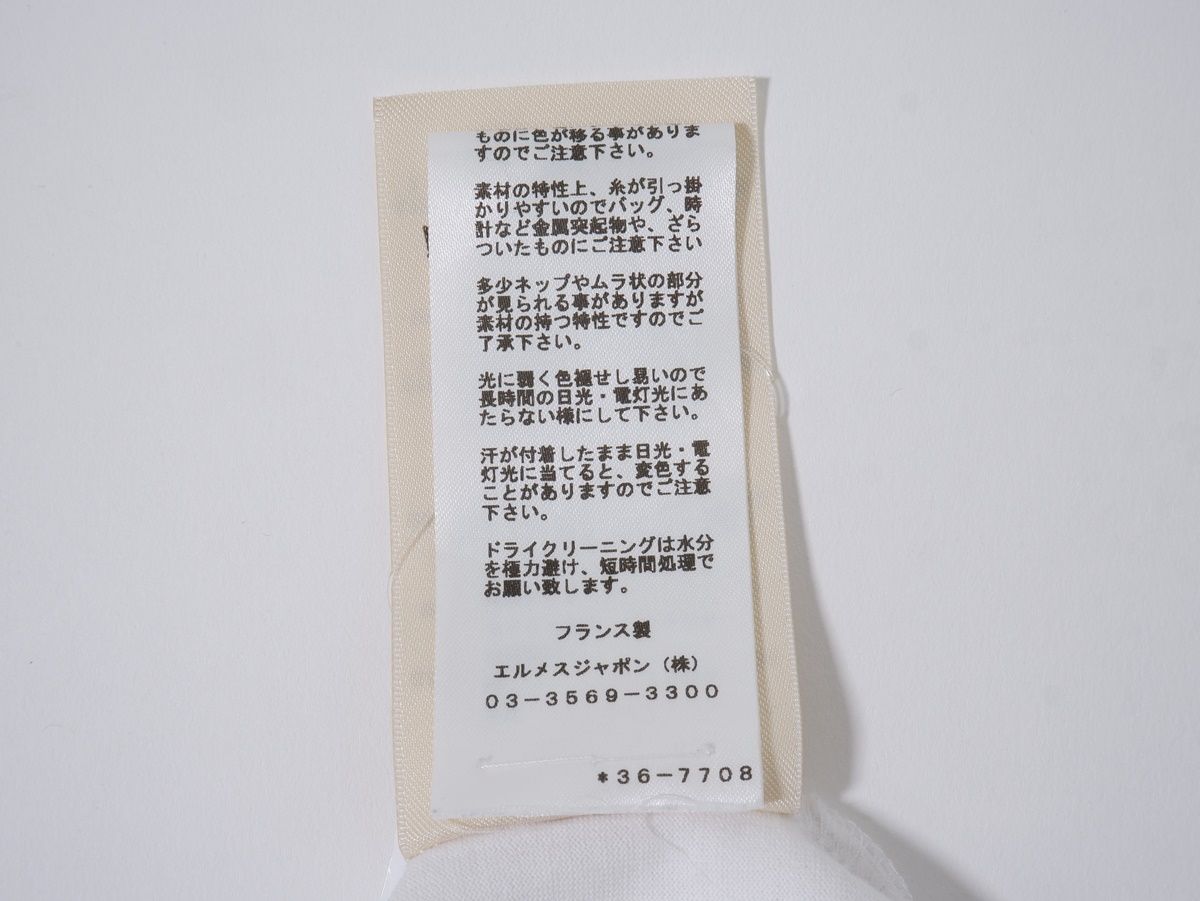 ものに色が移る事がありま
すのでご注意下さい。
素材の特性上、糸が引っ掛
かりやすいのでバッグ、時
計など金属突起物や、ざら
ついたものにご注意下さい
多少ネップやムラ状の部分
が見られる事がありますが
素材の持つ特性ですのでご
了承下さい。
光に弱く色褪せし易いので
長時間の日光・電灯光にあ
たらない様にして下さい。
汗が付着したまま日光・電
灯光に当てると、変色する
ことがありますのでご注意
下さい。
ドライクリーニングは水分
を極力避け、短時間処理で
お願い致します。
フランス製
エルメスジャポン（株）
03-3569-3300
*36-7708